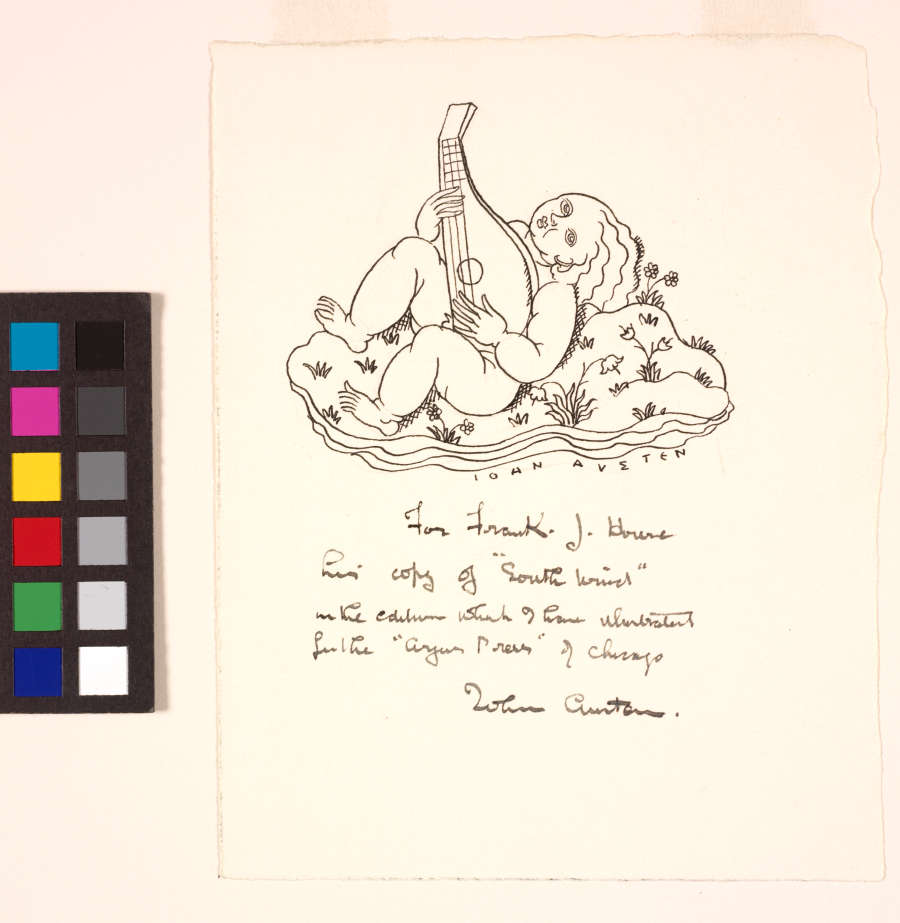 IOAN AVΣTEN
For Frank. J. House
his copy of "South Wind"
in the edition which I have illustrated
for the "Argus Press" of Chicago
John Austen.